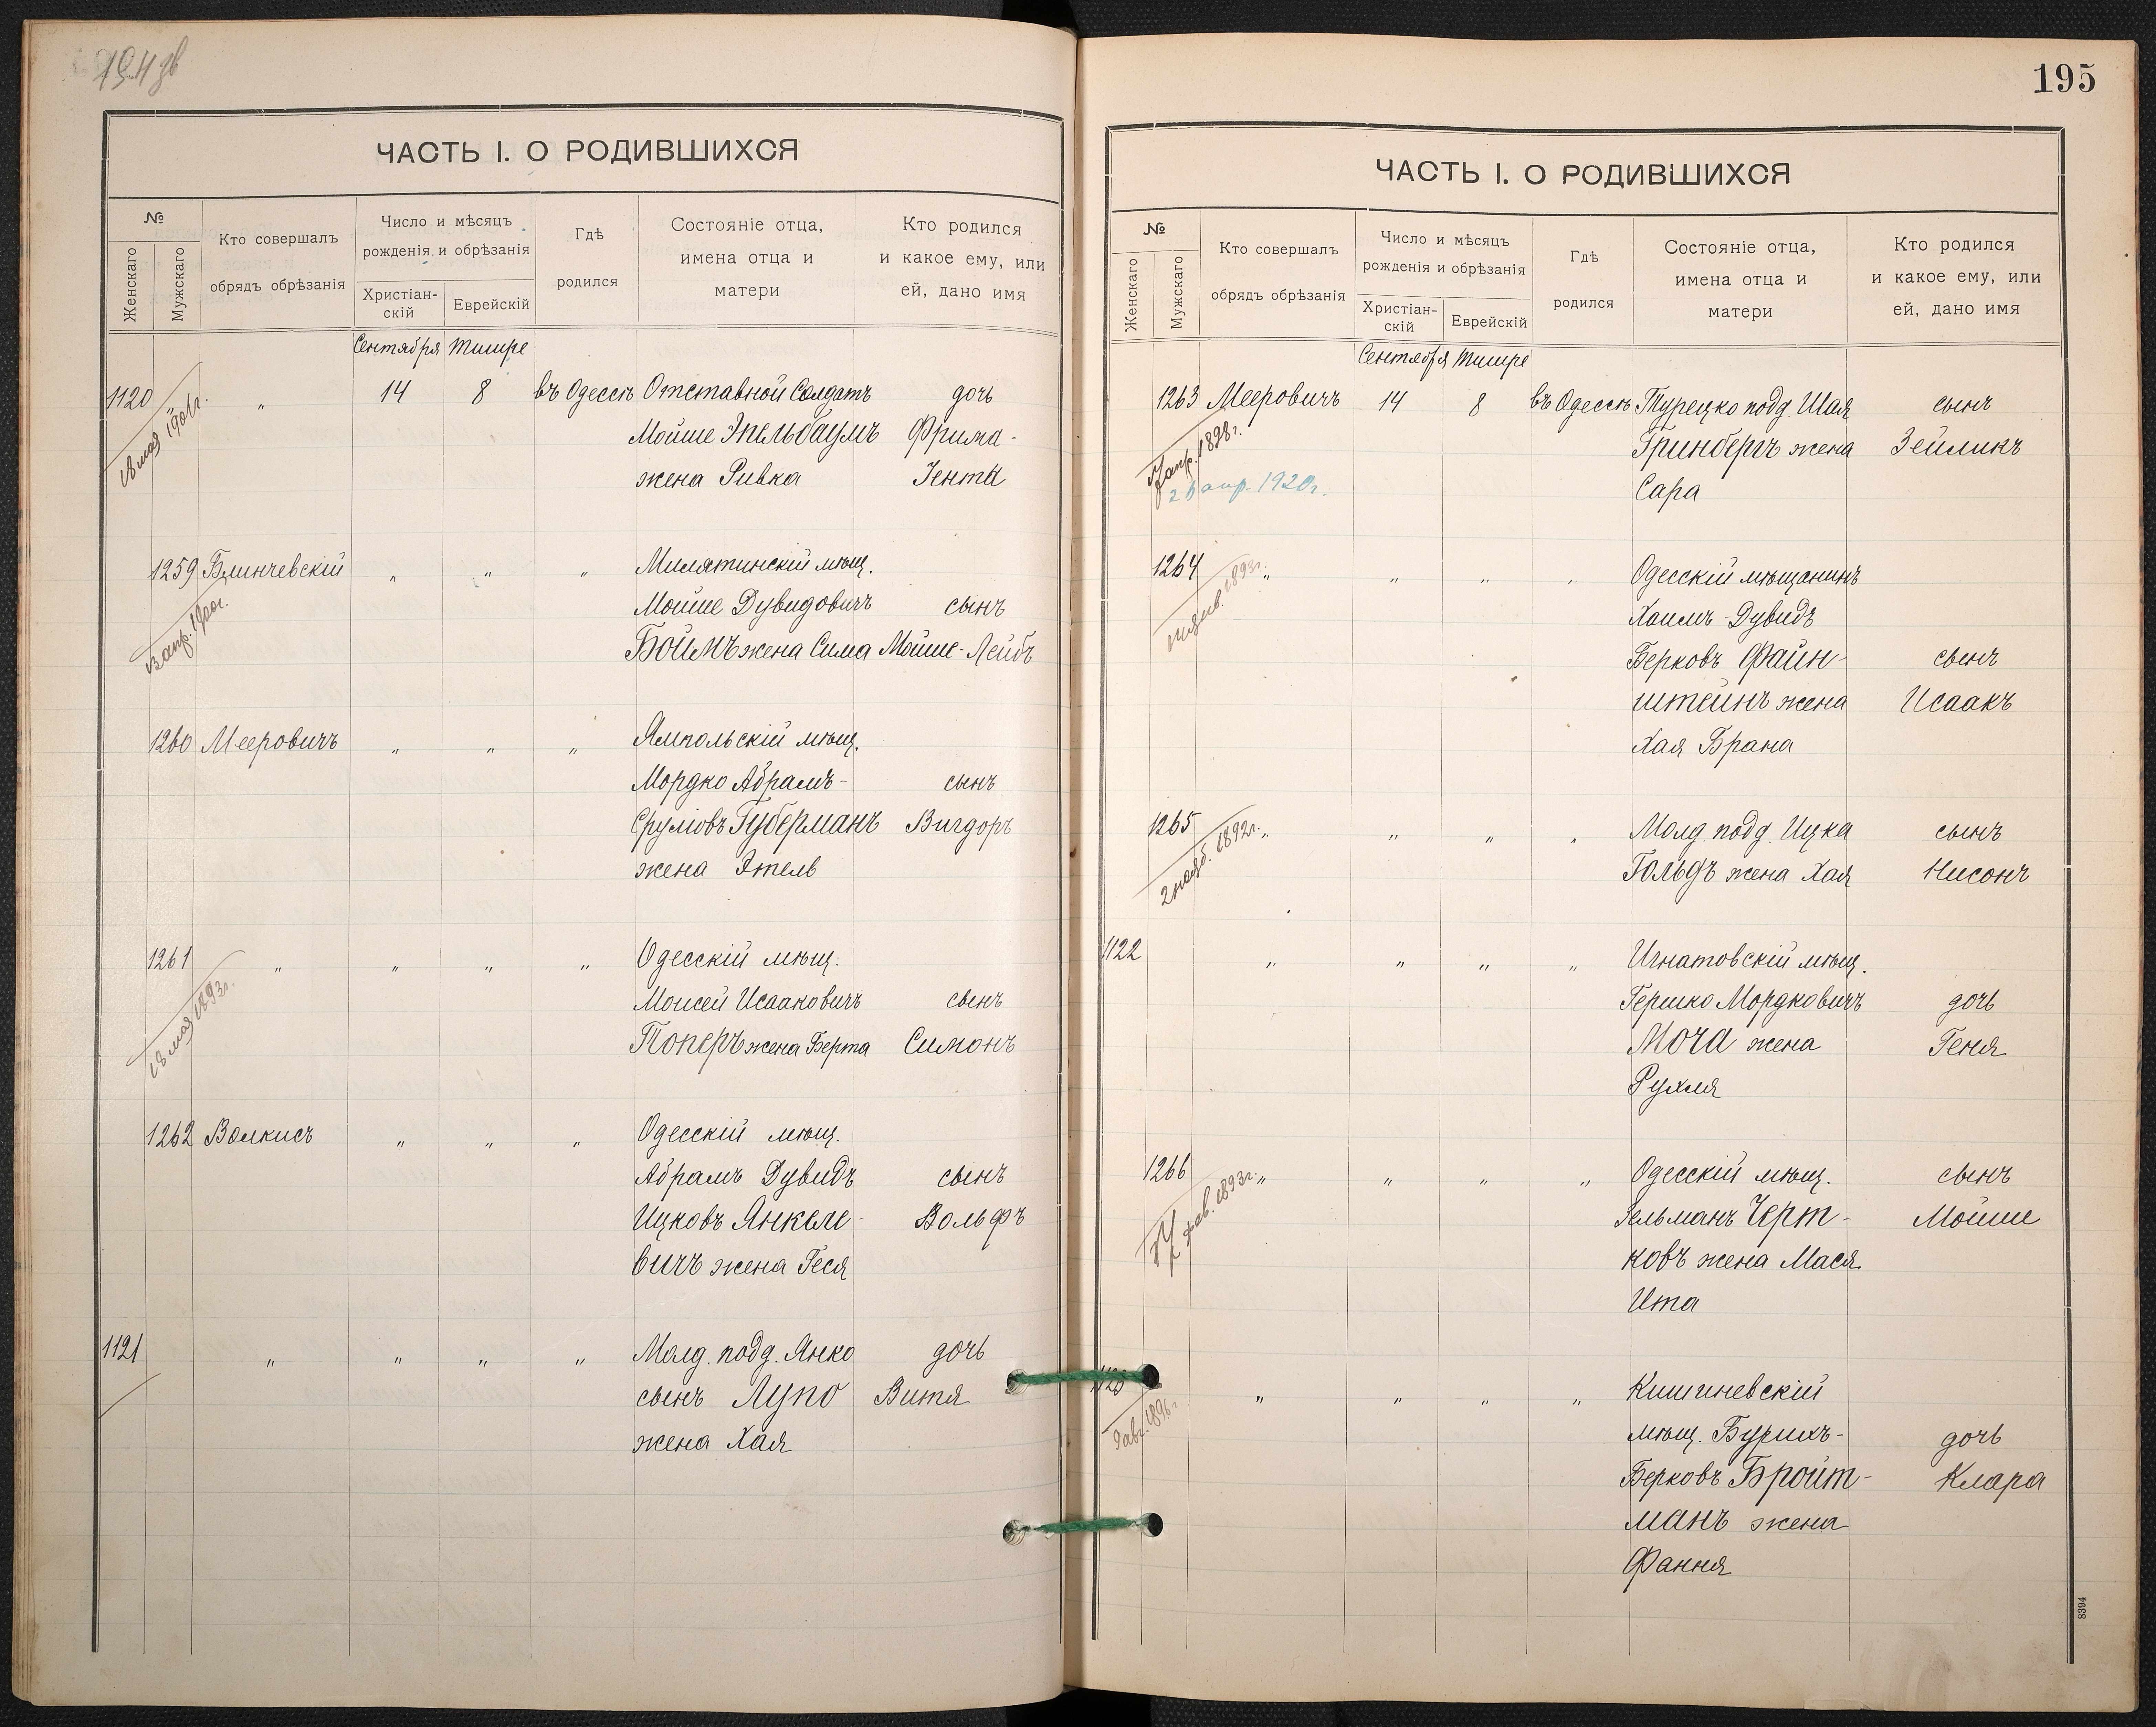 194 об
ЧАСТЬ I. О РОДИВШИХСЯ
№
Женскаго
Мужскаго
Кто совершалъ
обрядъ обрѣзанія
Число и мѣсяцъ
рожденія и обрѣзанія
Христіан-
скій
Еврейскій
Гдѣ
родился
Состояніе отца,
имена отца и
матери
Кто родился
и какое ему, или
ей, дано имя
Сентября Тишре
1120 " " 14 8 въ Одессѣ Отставной Солдатъ дочь
18 мая 1901г.
Мойше Эпельбаумъ Фрима-
жена Ривка Іента
1259 Блинчевскій " " " Милятинскій мѣщ.
13 апр. 1900г.
Мойше Дувидовичъ сынъ
Боймъ жена Сима Мойше-Лейбъ
1260 Мееровичъ " " " Ямпольскій мѣщ.
Мордко Абрамъ- сынъ
Сруліовъ Губерманъ Вигдоръ
жена Этель
1261 " " " " Одесскій мѣщ.
18 мая 1893г.
Моисей Исааковичъ сынъ
Топеръ жена Берта Симонъ
1262 Волкисъ " " " Одесскій мѣщ.
Абрамъ Дувидъ сынъ
Ицковъ Янкеле- Вольфъ
вичъ жена Геся
1121 " " " " Молд. подд. Янко дочь
сынъ Лупо Витя
жена Хая
195
ЧАСТЬ I. О РОДИВШИХСЯ
№
Женскаго
Мужскаго
Кто совершалъ
обрядъ обрѣзанія
Число и мѣсяцъ
рожденія и обрѣзанія
Христіан-
скій
Еврейскій
Гдѣ
родился
Состояніе отца,
имена отца и
матери
Кто родился
и какое ему, или
ей, дано имя
Сентября Тишре
1263 Мееровичъ 14 8 въ Одессѣ Турецко подд. Шая сынъ
апр. 1898г.
Гринбергъ жена Зейликъ
26 апр. 1920г.
Сара
1264 " " " " Одесскій мѣщанинъ
1893г.
Хаимъ-Дувидъ
Берковъ Файн- сынъ
штейнъ жена Исаакъ
Хая Брана
1265 " " " " Молд. подд. Ицка сынъ
2 нояб. 1892г.
Гольдъ жена Хая Нисонъ
1122 " " " " Игнатовскій мѣщ.
Гершко Мордковичъ дочь
Моча жена Геня
Рухля
1266 " " " " Одесскій мѣщ. сынъ
1893г.
Зельманъ Черт- Мойше
ковъ жена Мася
Ита
1123 " " " " Кишиневскій
9 авг. 1896г.
мѣщ. Бурихъ- дочь
Берковъ Бройт- Клара
манъ жена
Фання
8394